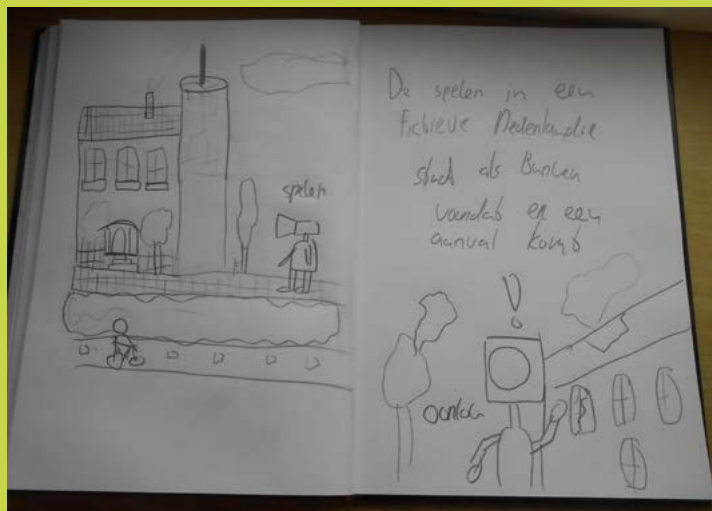 spelen
De spelen in een
fictieve Nederlandse
stad als Bunken
vandat er een
aanval komt